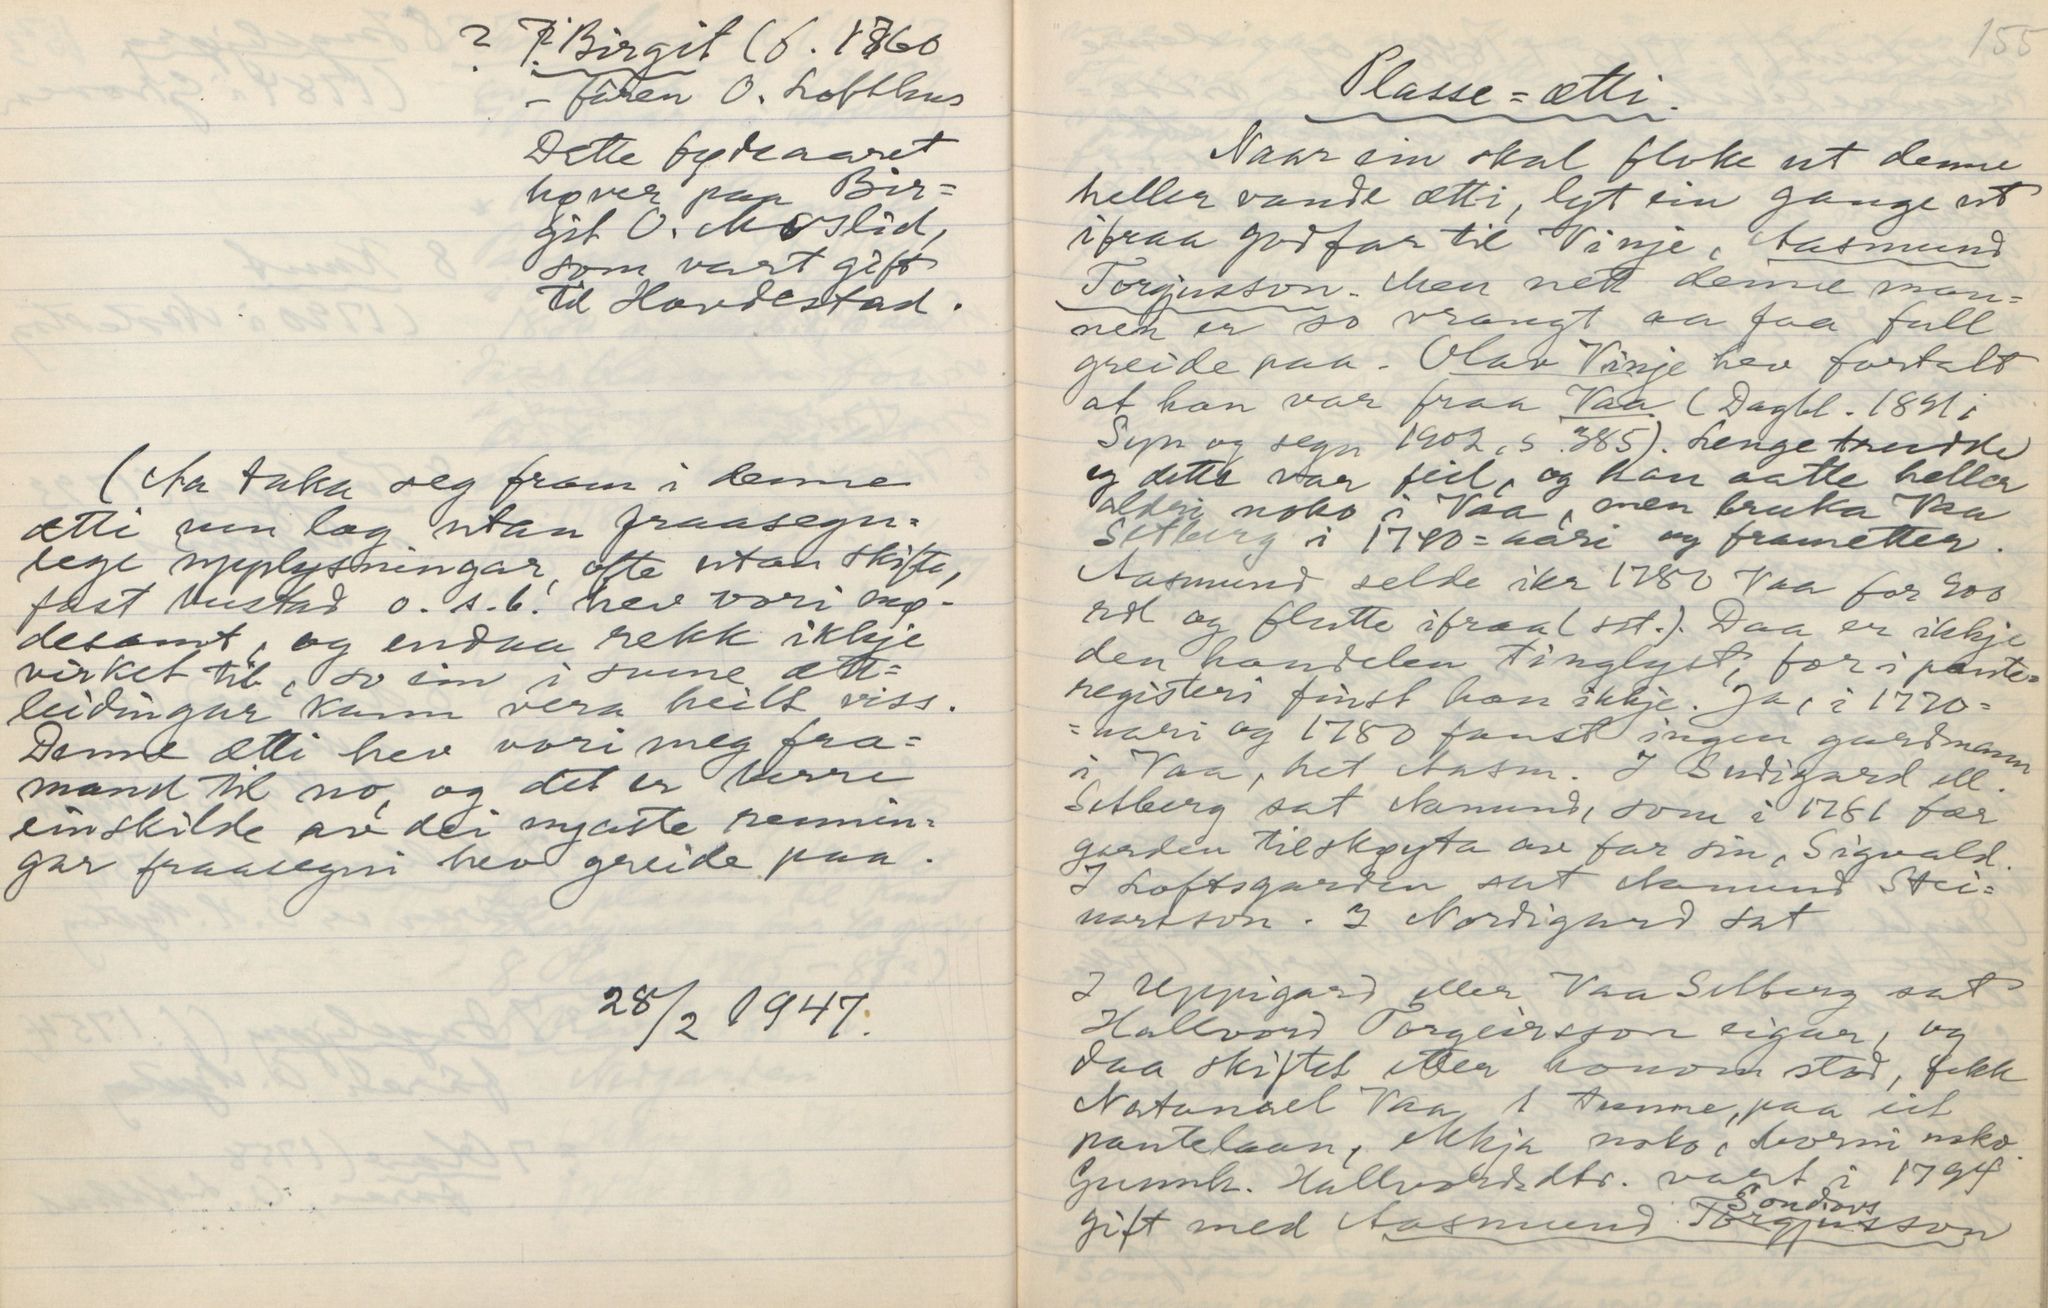 ? 7. Birgit (f. 1760
- fåren O. Lofthus
Dette fydeaaret
høver paa Bir=
git O. Moslid,
som vart gift
til Hovdestad.
(Aa taka seg fram i denne
ætti um lag utan fraasegn=
lege upplysningar, ofte utan skifte,
fast bustad o.s.b. hev vori mø-
desamt, og endaa rekk ikkje
virket til, so ein i sume ætt=
leidingar kann vera heilt viss.
Denne ætti hev vori meg fra=
mand til no, og det er berre
einskilde av dei nyaste rennin=
gar fraasegni hev greide paa.
28/2 1947.
155
Plasse=ætti.
Naar ein skal floke ut denne
heller vande ætti, lyt ein gange ut
ifraa godfar til Vinje, Aasmund
Torgjusson. Men nett denne man=
nen er so vrangt aa faa full
greide paa. Olav Vinje hev fortalt
at han var fraa Vaa (Dagbl. 1891 i
Syn og segn 1902, s. 385). Lenge trudde
eg dette var feil, og han aatte heller
aldri noko i Vaa, men bruka Vaa
Setberg i 1790=aari og frametter.
Aasmund selde ikr 1780 Vaa for 900
rdl og flutte ifraa (sst.). Daa er ikkje
den handelen tinglyst, for i pante=
registeri finst han ikkje. Ja, i 1770=
=aari og 1780 fanst ingen gardmann
i Vaa, het Aasm. I Sudigard ell.
Setberg sat Aamund, som i 1781 fær
garden tilskøyta av far sin, Sigvald.
I Loftsgarden sat Aamund Stei=
narsson. I Nordigard sat
I Uppigard eller Vaa Setberg sat
Hallvord Torgeirsson eigar, og
daa skiftet etter honom stod, fekk
Natanael Vaa 1 tunne, paa eit
pantelaan, ekkja noko, borni noko.
Gunnh. Hallvordsdtr. vart i 1794
Sondovs
gift med Aasmund Torgjusson